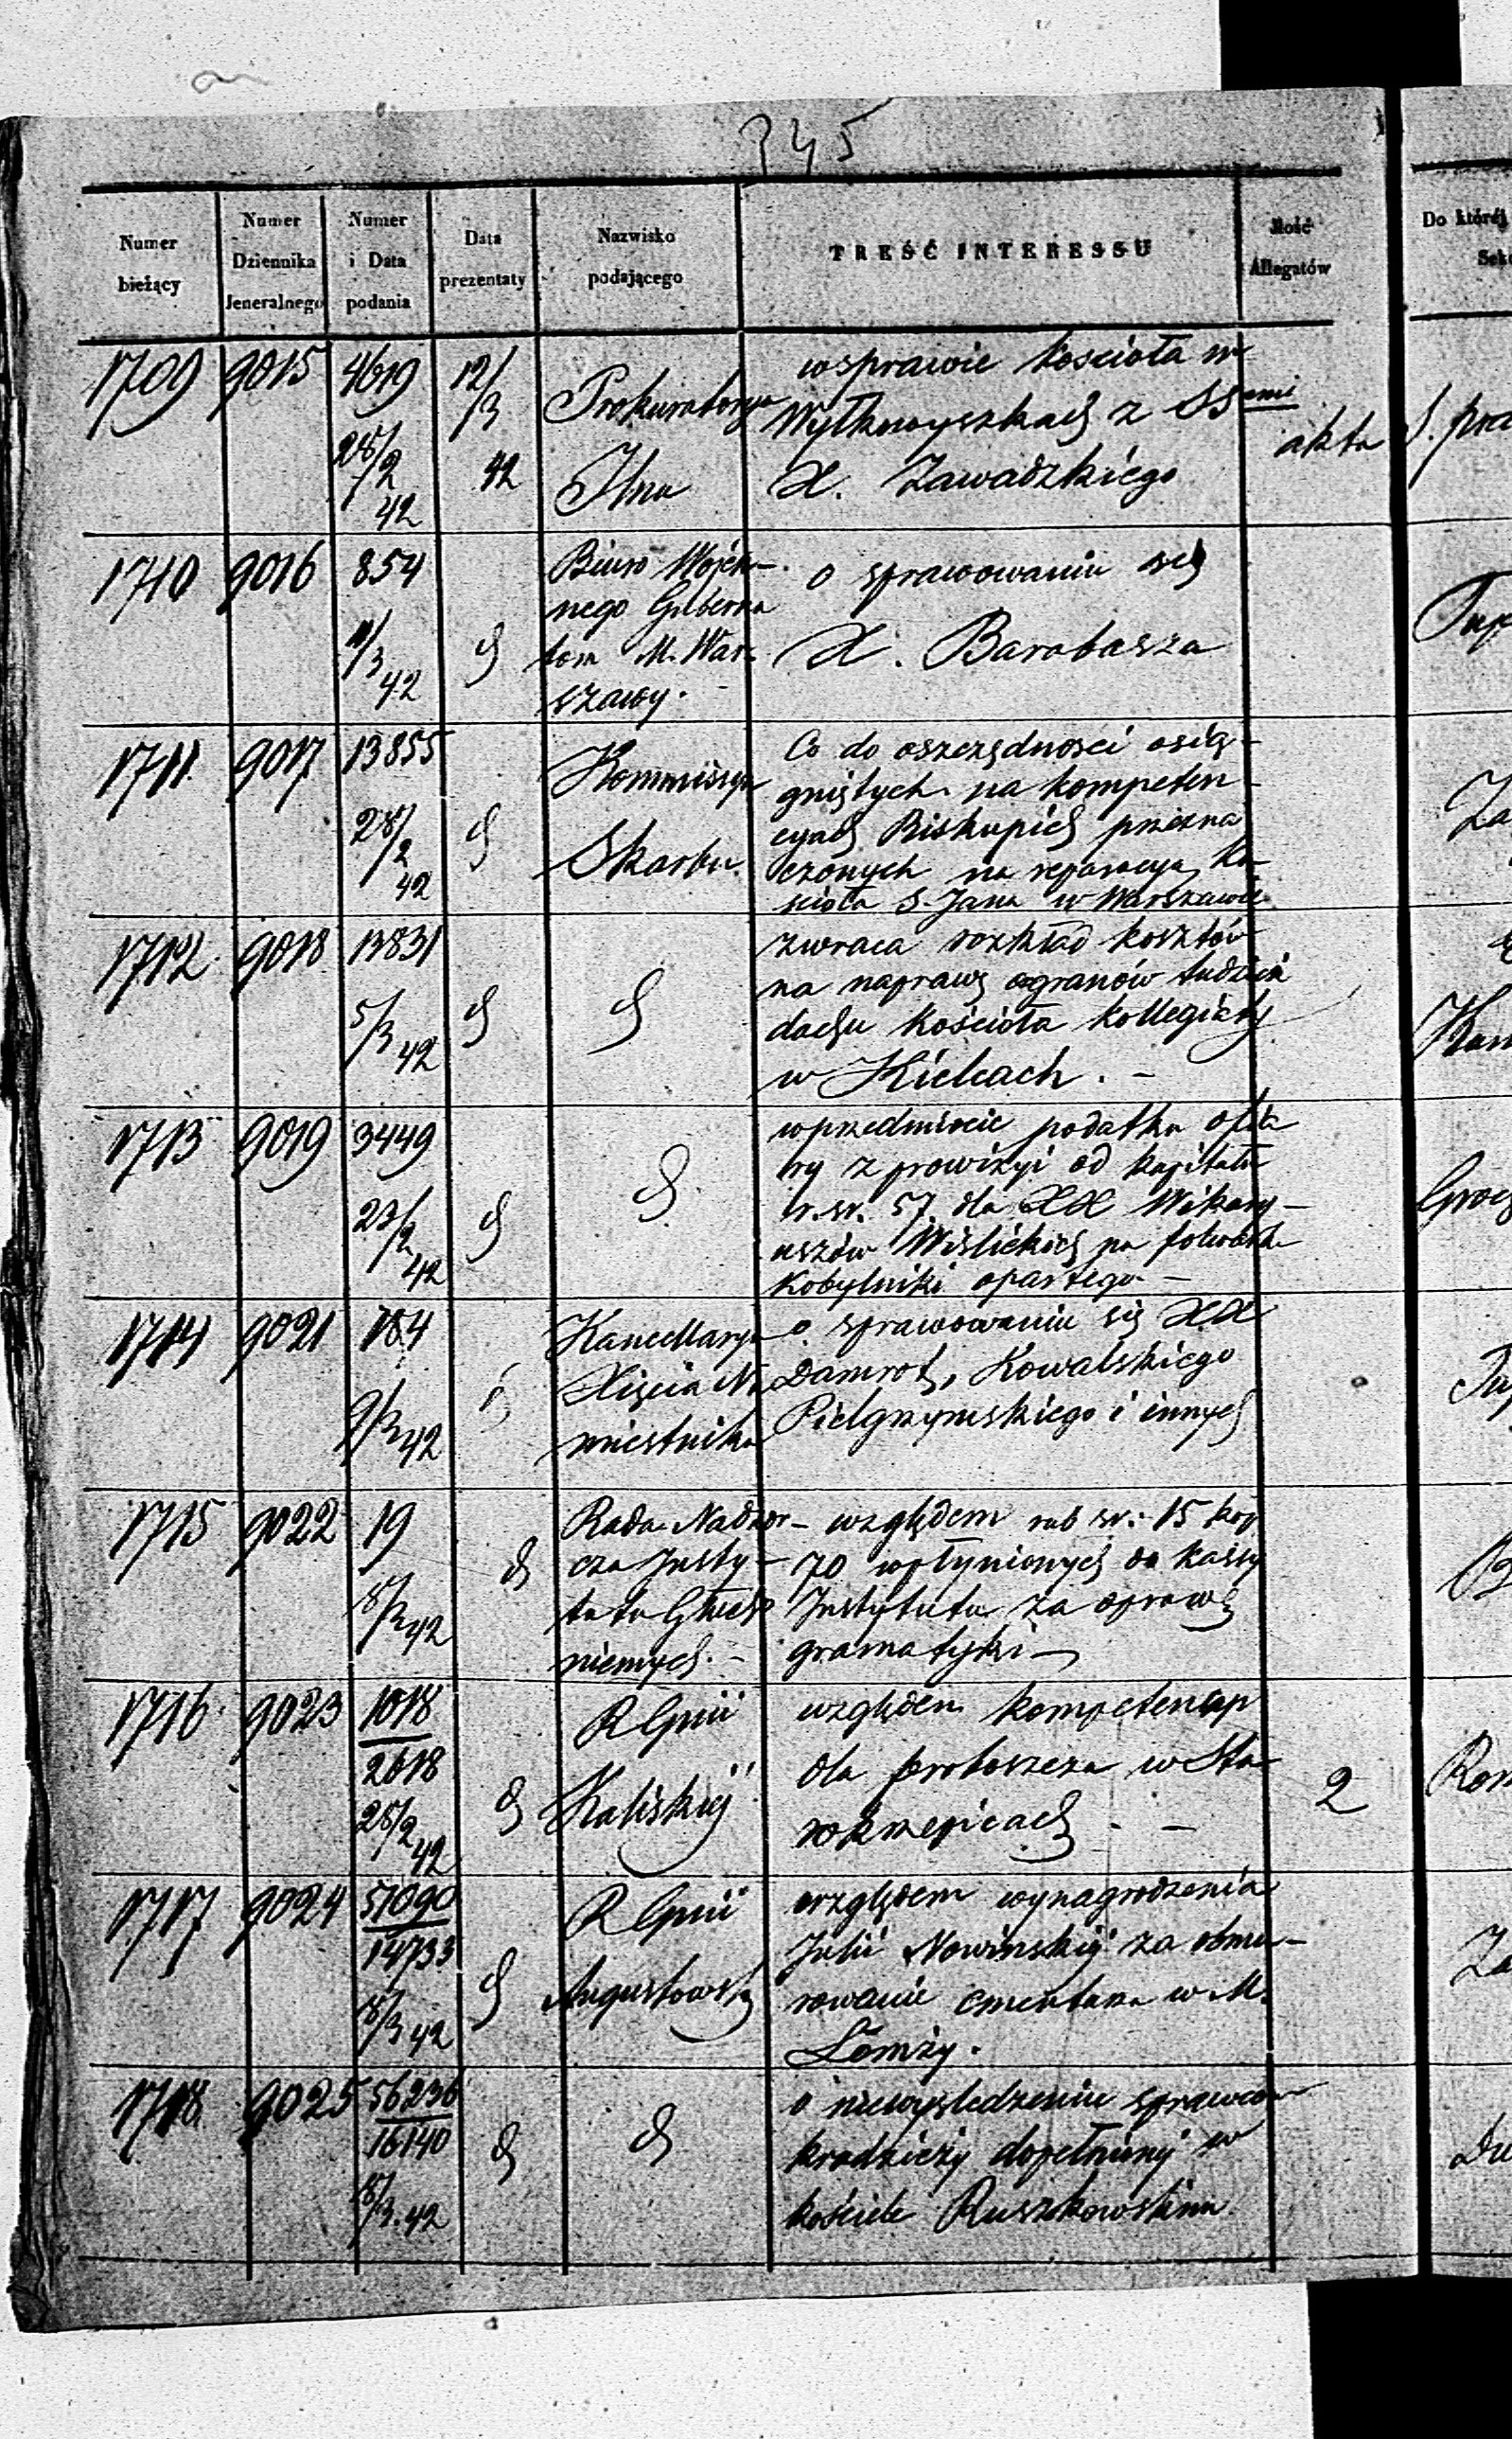 345
Numer bieżący
Numer Dziennika Jeneralnego
Numer i Data podania
Data prezentaty
Nazwisko podającego
TREŚĆ INTERESSU
Ilość Allegatów
Do której
1709 9015 4619 12/3 Prokuratorya wsprawie kościoła w
Wyłkowyszkach z SSmi
28/2 42 42 X. Zawadzkiego akta
1710 9016 854 Biuro Wojen-
nego Guberna
tora M. War-
szawy.
11/3 42 d
o sprawowaniu się
X. Barabasza
1711 9017 13855 Kommissya
28/2 42 d Skarbu
Co do oszczędności osią-
gniętych na kompeten-
cyach Biskupich przezna
czonych na reparacyą Ko-
ścioła S. Jana w Warszawie
1712 9018 13831
5/3 42 d d
zwraca rozkład kosztów
na naprawę organów tudzież
dachu Kościoła kollegiaty
w Kielcach. -
1713 9019 3449
23/2 42 d d
wprzedmiocie podatku ofia
ry z prowizyi od kapitału
r. sr. 57 dla XX Wikary-
uszów Wiślickich na folwarku
Kobylniki opartego -
1714 9021 184 Kancellarya
Xięcia Na
miestnika
9/3 42
o sprawowaniu się XX
Damrot, Kowalskiego
Pielgrzymskiego i innych
1715 9022 19 Rada Nadzor-
cza Insty-
tutu Głucho
niemych. -
8/3 42 d
względem rub sr. 15 kop
70 wpłynionych do kassy
Instytutu za oprawę
gramatyki -
1716 9023 1018
2618
28/2 42 d
R Gnii
Kaliskiéj
względem kompetencyi
dla proboszcza w Sta
rokrzepicach. - 2
1717 9024 51090
14733
8/3 42 d
R Gnii
Augustowsk
względem wynagrodzenia
Julii Nowinskiéj za obmu-
rowanie cmentarza w M.
Łomży.
1718 9025 56236
16140
8/3.42 d d
o niewyśledzeniu sprawców
kradzieży dopełnionéj w
kościele Ruszkowskim